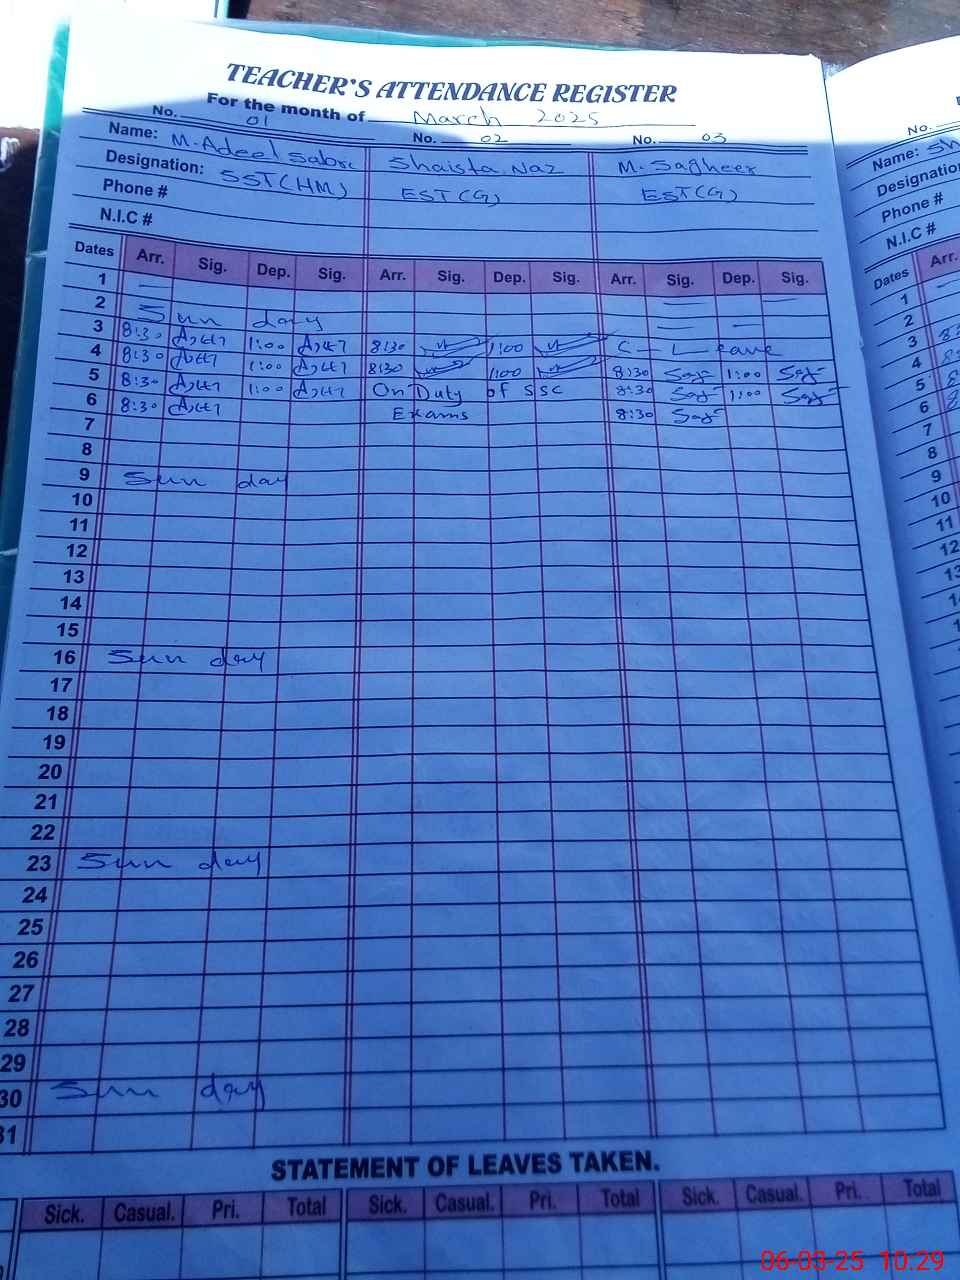 TEACHER'S ATTENDANCE REGISTER
For the month of March 2025
No. 01 No. 02 No. 03
Name: M. Adeel Sabir Shaista Naz M. Sagheer
Designation: SST(HM) EST(G) EST(G)
Phone #
N.I.C #
Dates Arr. Sig. Dep. Sig. Arr. Sig. Dep. Sig. Arr. Sig. Dep. Sig.
1
2 Sun day
3 8:30 1:00 8:30 1:00 C—Leave
4 8:30 1:00 8:30 1:00 8:30 1:00
5 8:30 1:00 On Duty of SSC 8:30 1:00
6 8:30 Exams 8:30
7
8
9 Sun day
10
11
12
13
14
15
16 Sun day
17
18
19
20
21
22
23 Sun day
24
25
26
27
28
29
30 Sun day
31
STATEMENT OF LEAVES TAKEN.
Sick. Casual. Pri. Total Sick. Casual. Pri. Total Sick. Casual. Pri. Total
No.
Name: Sh
Designation
Phone #
N.I.C #
Dates Arr.
1
2
3
4
5
6
7
8
9
10
11
12
13
06-03-25 10:29